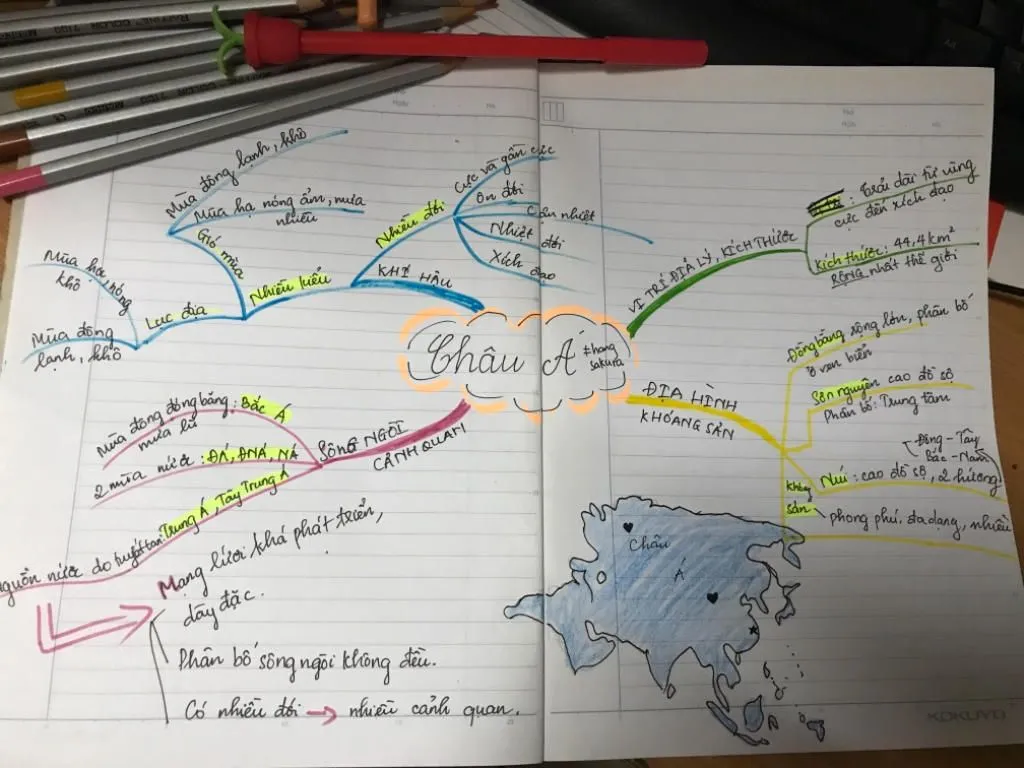 Châu Á
#hang
sakura
KHÍ HẬU
Nhiều đới
Cực và gần cực
Ôn đới
Cận nhiệt
Nhiệt đới
Xích đạo
Nhiều kiểu
Gió mùa
Mùa đông lạnh, khô
Mùa hạ nóng ẩm, mưa
nhiều
Lục địa
Mùa hạ, nóng
khô
Mùa đông
lạnh, khô
VỊ TRÍ ĐỊA LÝ, KÍCH THƯỚC
: Trải dài từ vùng
cực đến xích đạo
Kích thước: 44,4 km²
RỘNG nhất thế giới
ĐỊA HÌNH
KHOÁNG SẢN
Đồng bằng rộng lớn, phân bố
ở ven biển
Sơn nguyên cao đồ sộ
Phân bố: Trung tâm
Đông - Tây
Bắc - Nam
Núi: cao đồ sộ, 2 hướng
khoáng
sản
phong phú, đa dạng, nhiều
SÔNG NGÒI
CẢNH QUAN
Mùa đông đóng băng: Bắc Á
mưa lũ
2 mùa nước: ĐÁ, ĐNÁ, NÁ
nguồn nước do tuyết tan: Trung Á, Tây Trung Á
Mạng lưới khá phát triển,
dày đặc.
Phân bố sông ngòi không đều.
Có nhiều đới → nhiều cảnh quan.
Châu
Á
KOKUYO